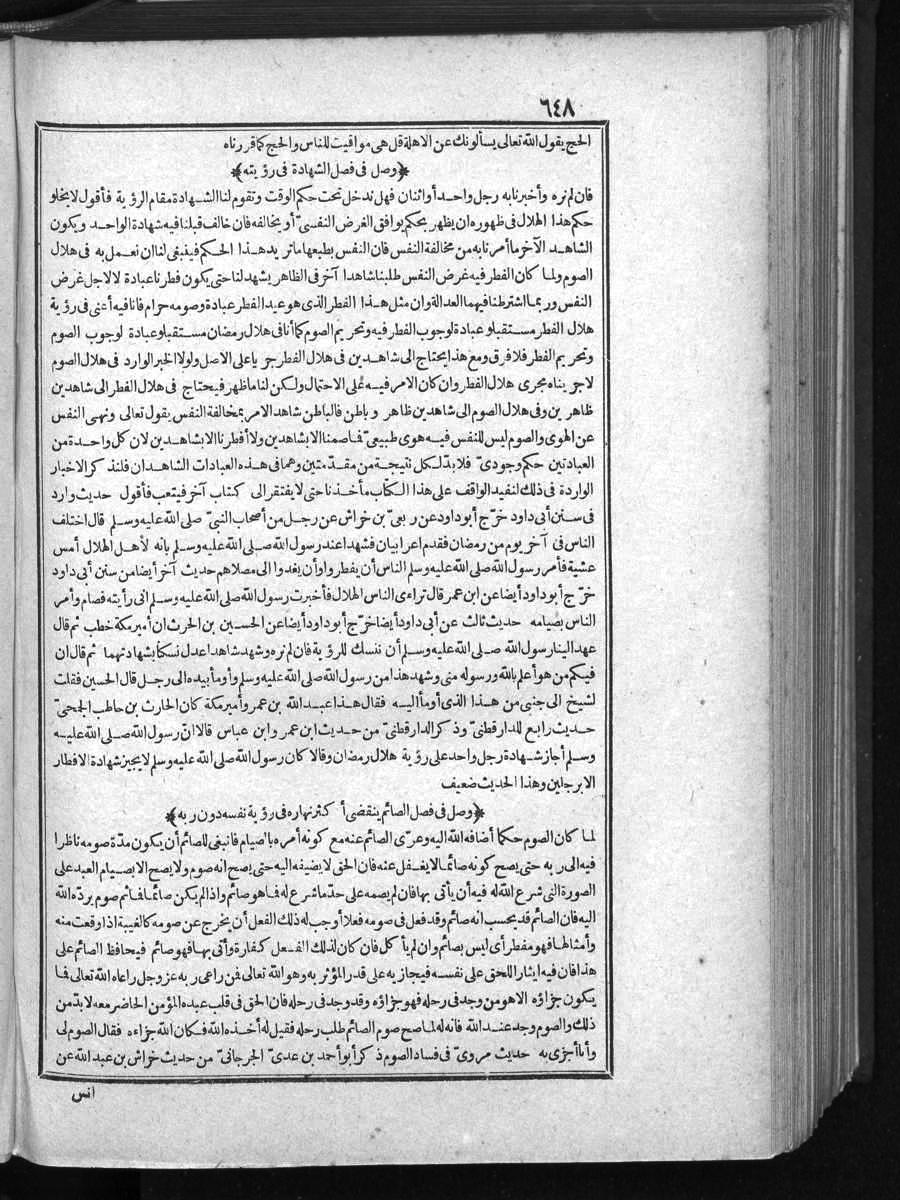 ٦٤٨
الحج يقول الله تعالى يسألونك عن الاهلة قل هى مواقيت للناس والحج كما قررناه
﴿وصل فى فصل الشهادة فى رؤيته﴾
فان لم نره وأخبرنابه رجل واحد أو اثنان فهل ندخل تحت حكم الوقت وتقوم لنا الشهادة مقام الرؤية فأقول لا يخلو
حكم هذا الهلال فى ظهوره ان يظهر بحكم يوافق الغرض النفسىّ أو يخالفه فان خالف قبلنا فيه شهادة الواحد ويكون
الشاهد الآخر ما أمرنا به من مخالفة النفس فان النفس بطبعها ما تريد هذا الحكم فينبغى لنا ان نعمل به فى هلال
الصوم ولما كان الفطر فيه غرض النفس طلبنا شاهدا آخر فى الظاهر يشهد لنا حتى يكون فطرنا عبادة لا لاجل غرض
النفس وربما اشترطنا فيهما العدالة وان مثل هذا الفطر الذى هو عيد الفطر عبادة وصومه حرام فانا فيه أعنى فى رؤية
هلال الفطر مستقبلو عبادة لوجوب الفطر فيه وتحريم الصوم كما أنا فى هلال رمضان مستقبلو عبادة لوجوب الصوم
وتحريم الفطر فلا فرق ومع هذا يحتاج الى شاهدين فى هلال الفطر جريا على الاصل ولولا الخبر الوارد فى هلال الصوم
لاجريناه مجرى هلال الفطر وان كان الامر فيه على الاحتمال ولكن لنا ما ظهر فيحتاج فى هلال الفطر الى شاهدين
ظاهرين وفى هلال الصوم الى شاهدين ظاهر وباطن فالباطن شاهد الامر بمخالفة النفس يقول تعالى ونهى النفس
عن الهوى والصوم ليس للنفس فيه هوى طبيعىّ فما صمنا الا بشاهدين ولا أفطرنا الا بشاهدين لان كل واحدة من
العبادتين حكم وجودىّ فلا بدّ لكل نتيجة من مقدّمتين وهما فى هذه العبادات الشاهدان فلنذكر الاخبار
الواردة فى ذلك لنفيد الواقف على هذا الكتاب مأخذنا حتى لا يفتقر الى كتاب آخر فيتعب فأقول حديث وارد
فى سنن أبى داود خرّج أبو داود عن ربعىّ بن خراش عن رجل من أصحاب النبىّ صلى الله عليه وسلم قال اختلف
الناس فى آخر يوم من رمضان فقدم اعرابيان فشهدا عند رسول الله صلى الله عليه وسلم بانه لأهل الهلال أمس
عشية فأمر رسول الله صلى الله عليه وسلم الناس أن يفطروا وأن يغدوا الى مصلاهم حديث آخر أيضا من سنن أبى داود
خرّج أبو داود أيضا عن ابن عمر قال تراءى الناس الهلال فأخبرت رسول الله صلى الله عليه وسلم انى رأيته فصام وأمر
الناس بصيامه حديث ثالث عن أبى داود أيضا خرّج أبو داود أيضا عن الحسين بن الحرث ان أمير مكة خطب ثم قال
عهد الينا رسول الله صلى الله عليه وسلم أن ننسك للرؤية فان لم نره وشهد شاهدا عدل نسكنا بشهادتهما ثم قال ان
فيكم من هو أعلم بالله ورسوله منى وشهد هذا من رسول الله صلى الله عليه وسلم وأومأ بيده الى رجل قال الحسين فقلت
لشيخ الى جنبى من هذا الذى أومأ اليه فقال هذا عبد الله بن عمر وأمير مكة كان الحارث بن حاطب الجمحىّ
حديث رابع للدارقطنىّ وذكر الدارقطنىّ من حديث ابن عمر وابن عباس قالا انّ رسول الله صلى الله عليه
وسلم أجاز شهادة رجل واحد على رؤية هلال رمضان وقالا كان رسول الله صلى الله عليه وسلم لا يجيز شهادة الافطار
الا برجلين وهذا الحديث ضعيف
﴿وصل فى فصل الصائم ينقضى أكثر نهاره فى رؤية نفسه دون ربه﴾
لما كان الصوم حكما أضافه الله اليه وعرّى الصائم عنه مع كونه أمره با صيام فانبغى للصائم أن يكون مدّة صومه ناظرا
فيه الى ربه حتى يصح كونه صائما لا يغفل عنه فان الحق لا يضيفه اليه حتى يصح انه صوم ولا يصح الا بصيام العبد على
الصورة التى شرع الله له فيه أن يأتى بها فان لم يصمه على حدّ ما شرع له فما هو صائم واذا لم يكن صائما فما ثم صوم يردّه الله
اليه فان الصائم قد يحسب انه صائم وقد فعل فى صومه فعلا أوجب له ذلك الفعل أن يخرج عن صومه كالغيبة اذا وقعت منه
وأمثالها فهو مفطر أى ليس بصائم وان لم يأكل فان كان لذلك الفعل كفارة وأتى بها فهو صائم فيحافظ الصائم على
هذا فان فيه ايثار الحق على نفسه فيجازيه على قدر المؤثر به وهو الله تعالى فمن راعى ربه عز وجل راعاه الله تعالى فما
يكون جزاؤه الا هو من وجد فى رحله فهو جزاؤه وقد وجد فى رحله فان الحق فى قلب عبده المؤمن الحاضر معه لا بدّ من
ذلك والصوم وجد عند الله فانه له لما صح صوم الصائم طلب رحله فقيل له أخذه الله فكان الله جزاءه فقال الصوم لى
وأنا أجزى به حديث مروىّ فى فساد الصوم ذكر أبو أحمد بن عدىّ الجرجانىّ من حديث خراش بن عبد الله عن
انس